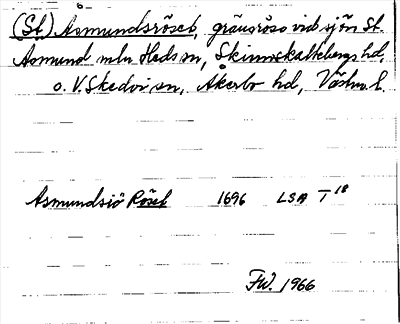 (St.) Asmundsröset, gränsröse vid sjön St.
Asmund mln Heds sn, Skinnskattebergs hd,
o. V. Skedvi sn, Åkerbo hd, Västm. l.
Asmundsiö Rösel 1696 LSA T 18
FW. 1966